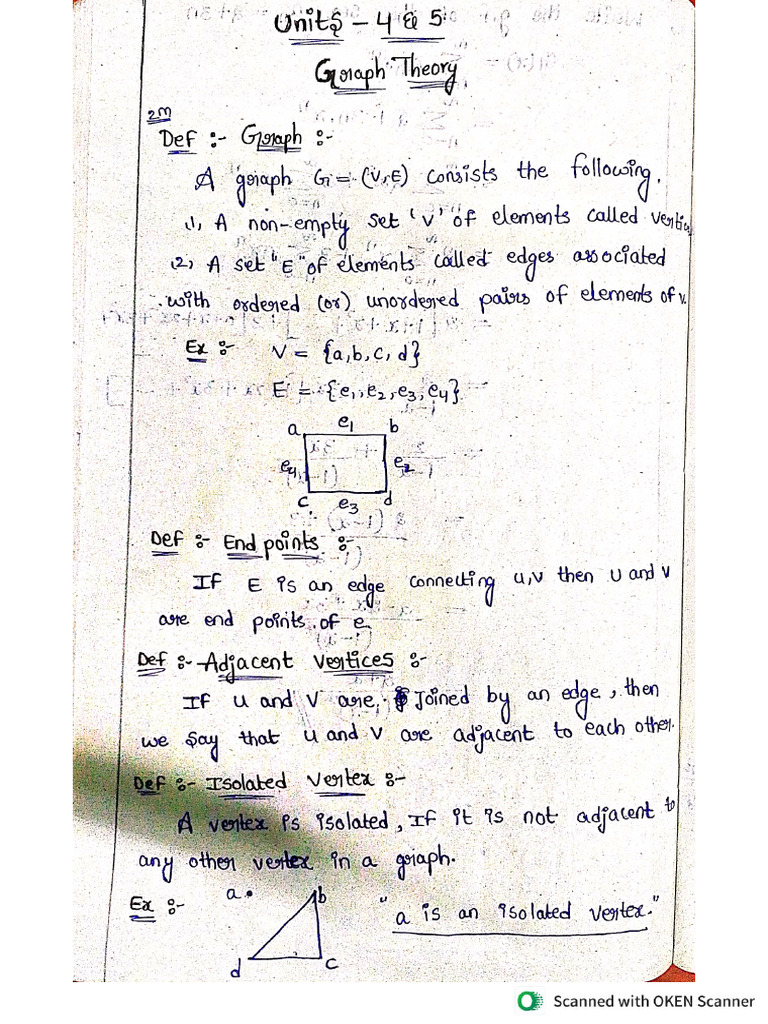 Units - 4 & 5
Graph Theory
2M
Def :- Graph :-
A graph G = (V, E) consists the following.
(1) A non-empty set 'V' of elements called vertic
(2) A set "E" of elements called edges associated
with ordered (or) unordered pairs of elements of v.
Ex :- V = {a, b, c, d}
E = {e1, e2, e3, e4}
a e1 b
e4 e2
c e3 d
Def :- End points :-
If E is an edge connecting u,v then u and v
are end points of e
Def :- Adjacent vertices :-
If u and v are Joined by an edge, then
we say that u and v are adjacent to each other.
Def :- Isolated vertex :-
A vertex is isolated, If it is not adjacent to
any other vertex in a graph.
Ex :- a b "a is an isolated vertex."
d c
Scanned with OKEN Scanner